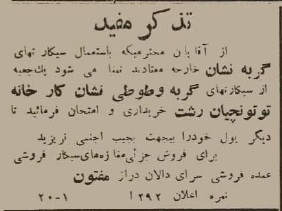 تذکر مفید
از آقایان محترمیکه باستعمال سیگارتهای
گربه نشان خارجه معتادند تمنا می شود یکجعبه
از سیگارتهای گربه وطوطی نشان کار خانه
توتونچیان رشت خریداری و امتحان فرمائید تا
دیگر پول خودرا بیجهت بجیب اجنبی نریزید
برای فروش جزئی مغازه‌های سیگار فروشی
عمده فروشی سرای دالان دراز مفتون
نمره اعلان ۲۹۲ ۱ ۱-۲۰